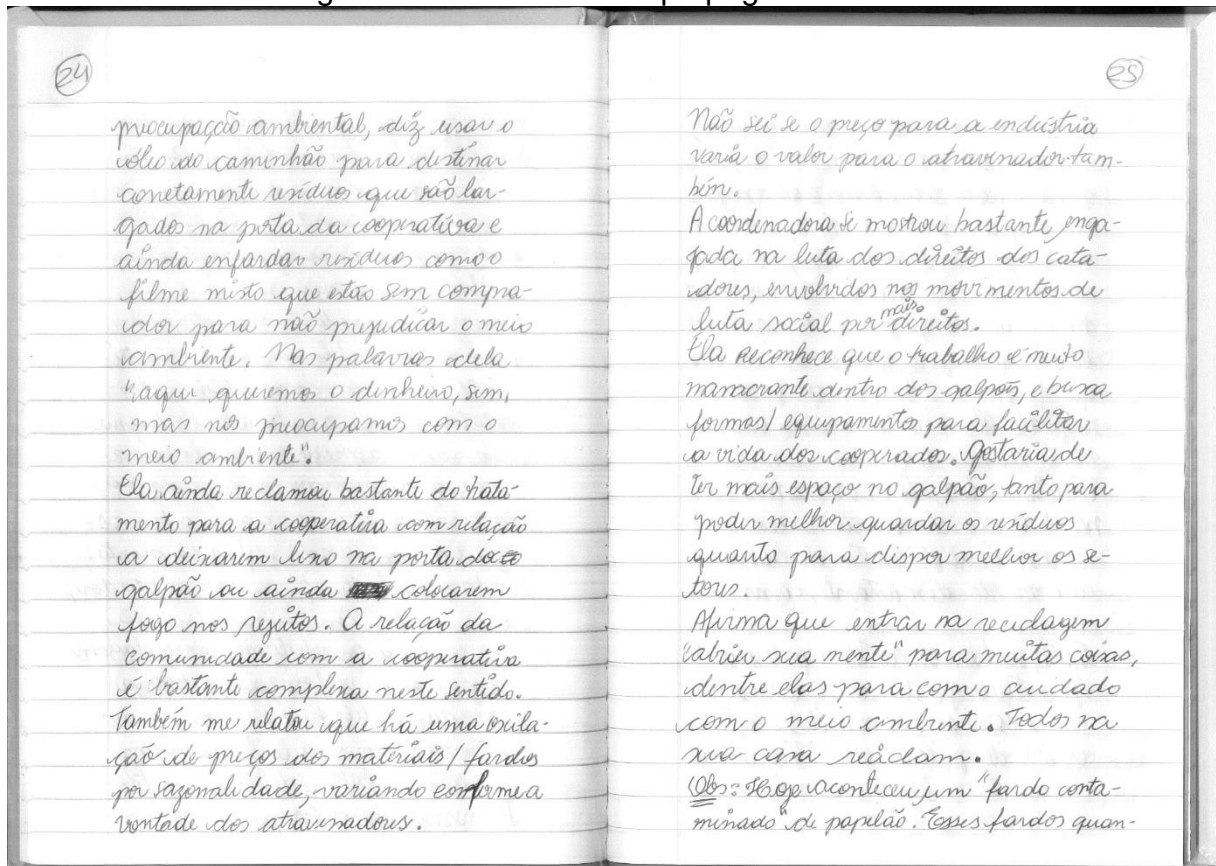 24
preocupação ambiental, diz usar o
óleo do caminhão para destinar
corretamente resíduos que são lar-
gados na porta da cooperativa e
ainda enfardar resíduos como o
filme misto que estão sem compra-
dor para não prejudicar o meio
ambiente. Nas palavras dela
"aqui queremos o dinheiro, sim,
mas nos preocupamos com o
meio ambiente".
Ela ainda reclamou bastante do trata-
mento para a cooperativa com relação
a deixarem lixo na porta do
galpão ou ainda colocarem
fogo nos rejeitos. A relação da
comunidade com a cooperativa
é bastante complexa neste sentido.
Também me relatou que há uma oxila-
ção de preços dos materiais / fardos
por sazonalidade, variando conforme a
vontade dos atravessadores.
25
Não sei se o preço para a indústria
varia o valor para o atravessador tam-
bém.
A coordenadora se mostrou bastante enga-
jada na luta dos direitos dos cata-
dores, envolvidos nos movimentos de
luta social por mais direitos.
Ela reconhece que o trabalho é muito
massacrante dentro dos galpões, e busca
formas/ equipamentos para facilitar
a vida dos cooperados. Gostaria de
ter mais espaço no galpão, tanto para
poder melhor guardar os resíduos
quanto para dispor melhor os se-
tores.
Afirma que entrar na reciclagem
"abriu sua mente" para muitas coisas,
dentre elas para com o cuidado
com o meio ambiente. Todos na
sua casa reciclam.
Obs: Hoje aconteceu um "fardo conta-
minado" de papelão. Esses fardos quan-